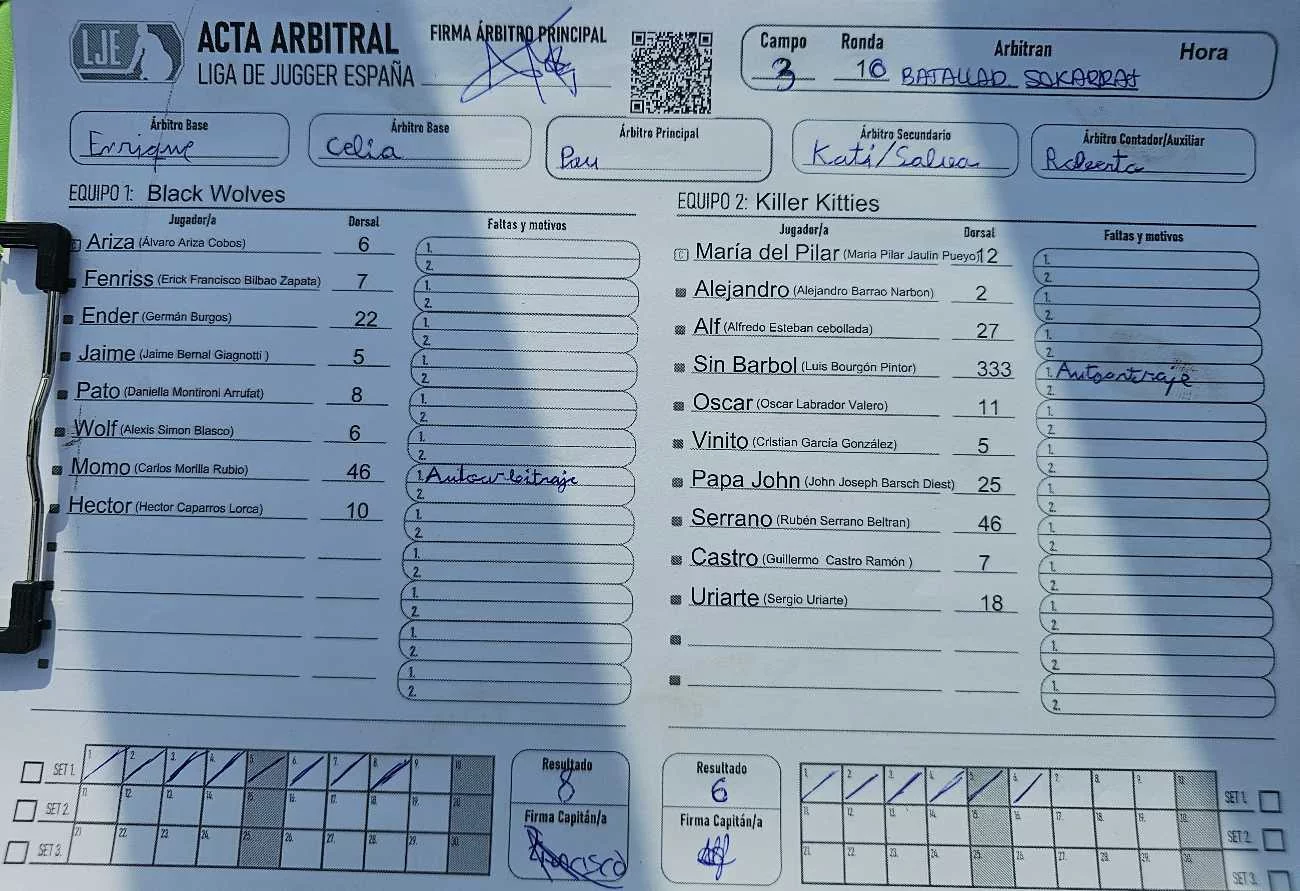 LJE
ACTA ARBITRAL
LIGA DE JUGGER ESPAÑA
FIRMA ÁRBITRO PRINCIPAL
Campo Ronda Arbitran Hora
3 10 BATALLAD SOKARRAT
Árbitro Base
Enrique
Árbitro Base
Celia
Árbitro Principal
Pau
Árbitro Secundario
Kati/Salva
Árbitro Contador/Auxiliar
Roberta
EQUIPO 1: Black Wolves
Jugador/a Dorsal Faltas y motivos
Ariza (Álvaro Ariza Cobos) 6 1.
2.
Fenriss (Erick Francisco Bilbao Zapata) 7 1.
2.
Ender (Germán Burgos) 22 1.
2.
Jaime (Jaime Bernal Giagnotti ) 5 1.
2.
Pato (Daniella Montironi Arrufat) 8 1.
2.
Wolf (Alexis Simon Blasco) 6 1.
2.
Momo (Carlos Morilla Rubio) 46 1. Autoarbitraje
2.
Hector (Hector Caparros Lorca) 10 1.
2.
1.
2.
1.
2.
1.
2.
1.
2.
EQUIPO 2: Killer Kitties
Jugador/a Dorsal Faltas y motivos
C María del Pilar (Maria Pilar Jaulín Pueyo) 12 1.
2.
Alejandro (Alejandro Barrao Narbon) 2 1.
2.
Alf (Alfredo Esteban cebollada) 27 1.
2.
Sin Barbol (Luis Bourgón Pintor) 333 1. Autoarbitraje
2.
Oscar (Oscar Labrador Valero) 11 1.
2.
Vinito (Cristian García González) 5 1.
2.
Papa John (John Joseph Barsch Diest) 25 1.
2.
Serrano (Rubén Serrano Beltran) 46 1.
2.
Castro (Guillermo Castro Ramón ) 7 1.
2.
Uriarte (Sergio Uriarte) 18 1.
2.
1.
2.
1.
2.
SET 1. 1. 2. 3. 4. 5. 6. 7. 8. 9. 10.
SET 2. 11. 12. 13. 14. 15. 16. 17. 18. 19. 20.
SET 3. 21. 22. 23. 24. 25. 26. 27. 28. 29. 30.
Resultado
8
Firma Capitán/a
Francisco
Resultado
6
Firma Capitán/a
1. 2. 3. 4. 5. 6. 7. 8. 9. 10. SET 1.
11. 12. 13. 14. 15. 16. 17. 18. 19. 20. SET 2.
21. 22. 23. 24. 25. 26. 27. 28. 29. 30. SET 3.